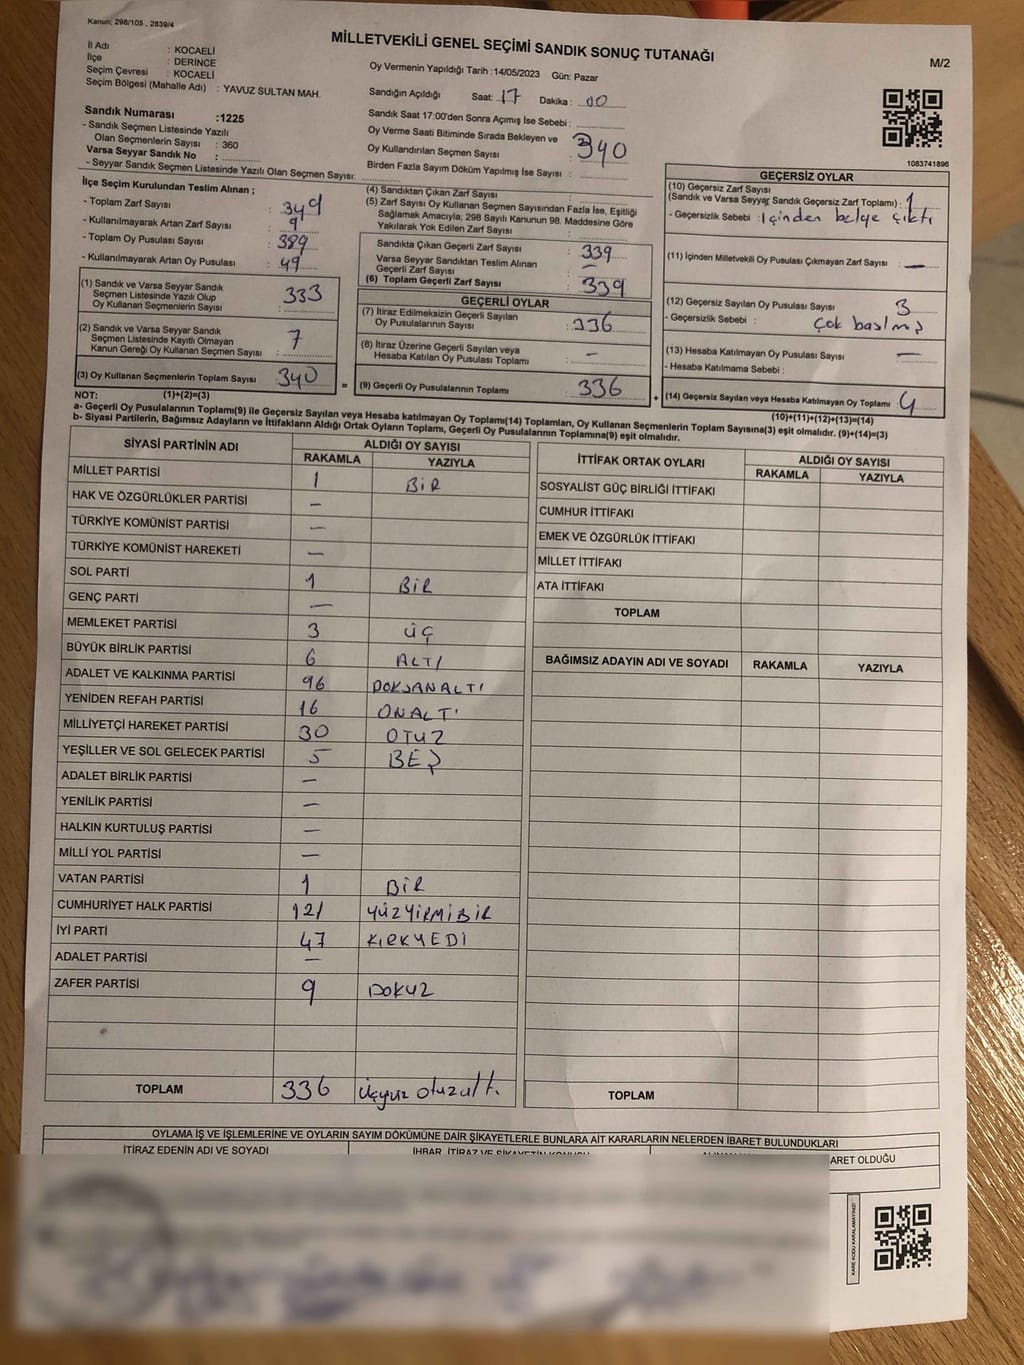 Kanun; 298/105 , 2839/4
MİLLETVEKİLİ GENEL SEÇİMİ SANDIK SONUÇ TUTANAĞI
M/2
İl Adı : KOCAELİ
İlçe : DERİNCE
Seçim Çevresi : KOCAELİ
Seçim Bölgesi (Mahalle Adı) : YAVUZ SULTAN MAH.
Sandık Numarası :1225
- Sandık Seçmen Listesinde Yazılı
Olan Seçmenlerin Sayısı : 360
Varsa Seyyar Sandık No :
- Seyyar Sandık Seçmen Listesinde Yazılı Olan Seçmen Sayısı:
Oy Vermenin Yapıldığı Tarih :14/05/2023 Gün: Pazar
Sandığın Açıldığı Saat: 17 Dakika : 00
Sandık Saat 17:00'den Sonra Açımış İse Sebebi :
Oy Verme Saati Bitiminde Sırada Bekleyen ve
Oy Kullandırılan Seçmen Sayısı : 340
Birden Fazla Sayım Döküm Yapılmış İse Sayısı :
1083741896
İlçe Seçim Kurulundan Teslim Alınan ;
- Toplam Zarf Sayısı : 349
- Kullanılmayarak Artan Zarf Sayısı : 9
- Toplam Oy Pusulası Sayısı : 389
- Kullanılmayarak Artan Oy Pusulası : 49
(1) Sandık ve Varsa Seyyar Sandık
Seçmen Listesinde Yazılı Olup
Oy Kullanan Seçmenlerin Sayısı : 333
(2) Sandık ve Varsa Seyyar Sandık
Seçmen Listesinde Kayıtlı Olmayan
Kanun Gereği Oy Kullanan Seçmen Sayısı : 7
(3) Oy Kullanan Seçmenlerin Toplam Sayısı : 340
(4) Sandıktan Çıkan Zarf Sayısı :
(5) Zarf Sayısı Oy Kullanan Seçmen Sayısından Fazla İse, Eşitliği
Sağlamak Amacıyla; 298 Sayılı Kanunun 98. Maddesine Göre
Yakılarak Yok Edilen Zarf Sayısı :
Sandıkta Çıkan Geçerli Zarf Sayısı : 339
Varsa Seyyar Sandıktan Teslim Alınan
Geçerli Zarf Sayısı : —
(6) Toplam Geçerli Zarf Sayısı : 339
GEÇERLİ OYLAR
(7) İtiraz Edilmeksizin Geçerli Sayılan
Oy Pusulalarının Sayısı : 336
(8) İtiraz Üzerine Geçerli Sayılan veya
Hesaba Katılan Oy Pusulası Toplamı : —
= (9) Geçerli Oy Pusulalarının Toplamı : 336
GEÇERSİZ OYLAR
(10) Geçersiz Zarf Sayısı
(Sandık ve Varsa Seyyar Sandık Geçersiz Zarf Toplamı) : 1
- Geçersizlik Sebebi : İçinden belge çıktı
(11) İçinden Milletvekili Oy Pusulası Çıkmayan Zarf Sayısı : —
(12) Geçersiz Sayılan Oy Pusulası Sayısı : 3
- Geçersizlik Sebebi : Çok basılmış
(13) Hesaba Katılmayan Oy Pusulası Sayısı : —
- Hesaba Katılmama Sebebi :
+ (14) Geçersiz Sayılan veya Hesaba Katılmayan Oy Toplamı : 4
NOT: (1)+(2)=(3)
(10)+(11)+(12)+(13)=(14)
a- Geçerli Oy Pusulalarının Toplamı(9) ile Geçersiz Sayılan veya Hesaba katılmayan Oy Toplamı(14) Toplamları, Oy Kullanan Seçmenlerin Toplam Sayısına(3) eşit olmalıdır. (9)+(14)=(3)
b- Siyasi Partilerin, Bağımsız Adayların ve İttifakların Aldığı Ortak Oyların Toplamı, Geçerli Oy Pusulalarının Toplamına(9) eşit olmalıdır.
SİYASİ PARTİNİN ADI ALDIĞI OY SAYISI
RAKAMLA YAZIYLA
MİLLET PARTİSİ 1 BİR
HAK VE ÖZGÜRLÜKLER PARTİSİ —
TÜRKİYE KOMÜNİST PARTİSİ —
TÜRKİYE KOMÜNİST HAREKETİ —
SOL PARTİ 1 BİR
GENÇ PARTİ —
MEMLEKET PARTİSİ 3 ÜÇ
BÜYÜK BİRLİK PARTİSİ 6 ALTI
ADALET VE KALKINMA PARTİSİ 96 DOKSANALTI
YENİDEN REFAH PARTİSİ 16 ONALTI
MİLLİYETÇİ HAREKET PARTİSİ 30 OTUZ
YEŞİLLER VE SOL GELECEK PARTİSİ 5 BEŞ
ADALET BİRLİK PARTİSİ —
YENİLİK PARTİSİ —
HALKIN KURTULUŞ PARTİSİ —
MİLLİ YOL PARTİSİ —
VATAN PARTİSİ 1 BİR
CUMHURİYET HALK PARTİSİ 121 YÜZYİRMİBİR
İYİ PARTİ 47 KIRKYEDİ
ADALET PARTİSİ —
ZAFER PARTİSİ 9 DOKUZ
TOPLAM 336 Üçyüz otuzaltı
İTTİFAK ORTAK OYLARI ALDIĞI OY SAYISI
RAKAMLA YAZIYLA
SOSYALİST GÜÇ BİRLİĞİ İTTİFAKI
CUMHUR İTTİFAKI
EMEK VE ÖZGÜRLÜK İTTİFAKI
MİLLET İTTİFAKI
ATA İTTİFAKI
TOPLAM
BAĞIMSIZ ADAYIN ADI VE SOYADI RAKAMLA YAZIYLA
TOPLAM
OYLAMA İŞ VE İŞLEMLERİNE VE OYLARIN SAYIM DÖKÜMÜNE DAİR ŞİKAYETLERLE BUNLARA AİT KARARLARIN NELERDEN İBARET BULUNDUKLARI
İTİRAZ EDENİN ADI VE SOYADI
İHBAR, İTİRAZ VE ŞİKAYETİN KONUSU
ARET OLDUĞU
KARE KODU KARALAMAYINIZ!